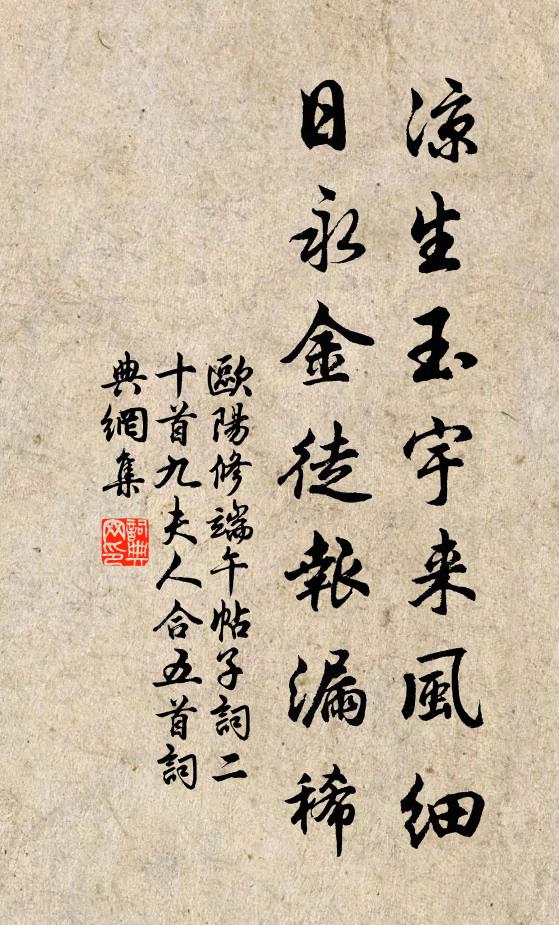 凉生玉宇来風细
日永金徒報漏稀
歐陽修端午帖子詞二
十首九夫人合五首詞
典網集
詞典网印